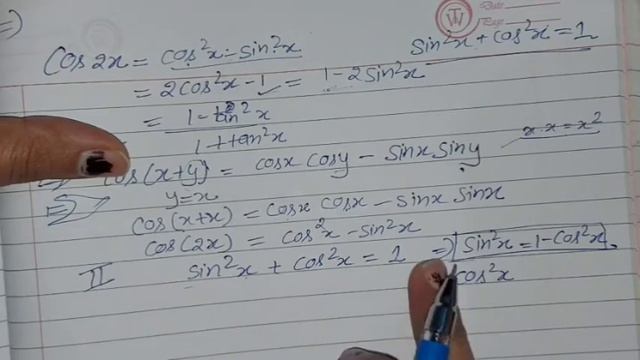 Date
Page
=)
Cos2x = cos²x - sin²x
sin²x + cos²x = 1
= 2cos²x - 1 = 1 - 2sin²x
= 1 - tan²x
1 + tan²x
cos(x+y) = cosx cosy - sinx siny
x·x = x²
=) y = x
cos(x+x) = cosx cosx - sinx sinx
cos(2x) = cos²x - sin²x
II sin²x + cos²x = 1 =) sin²x = 1 - cos²x
cos²x